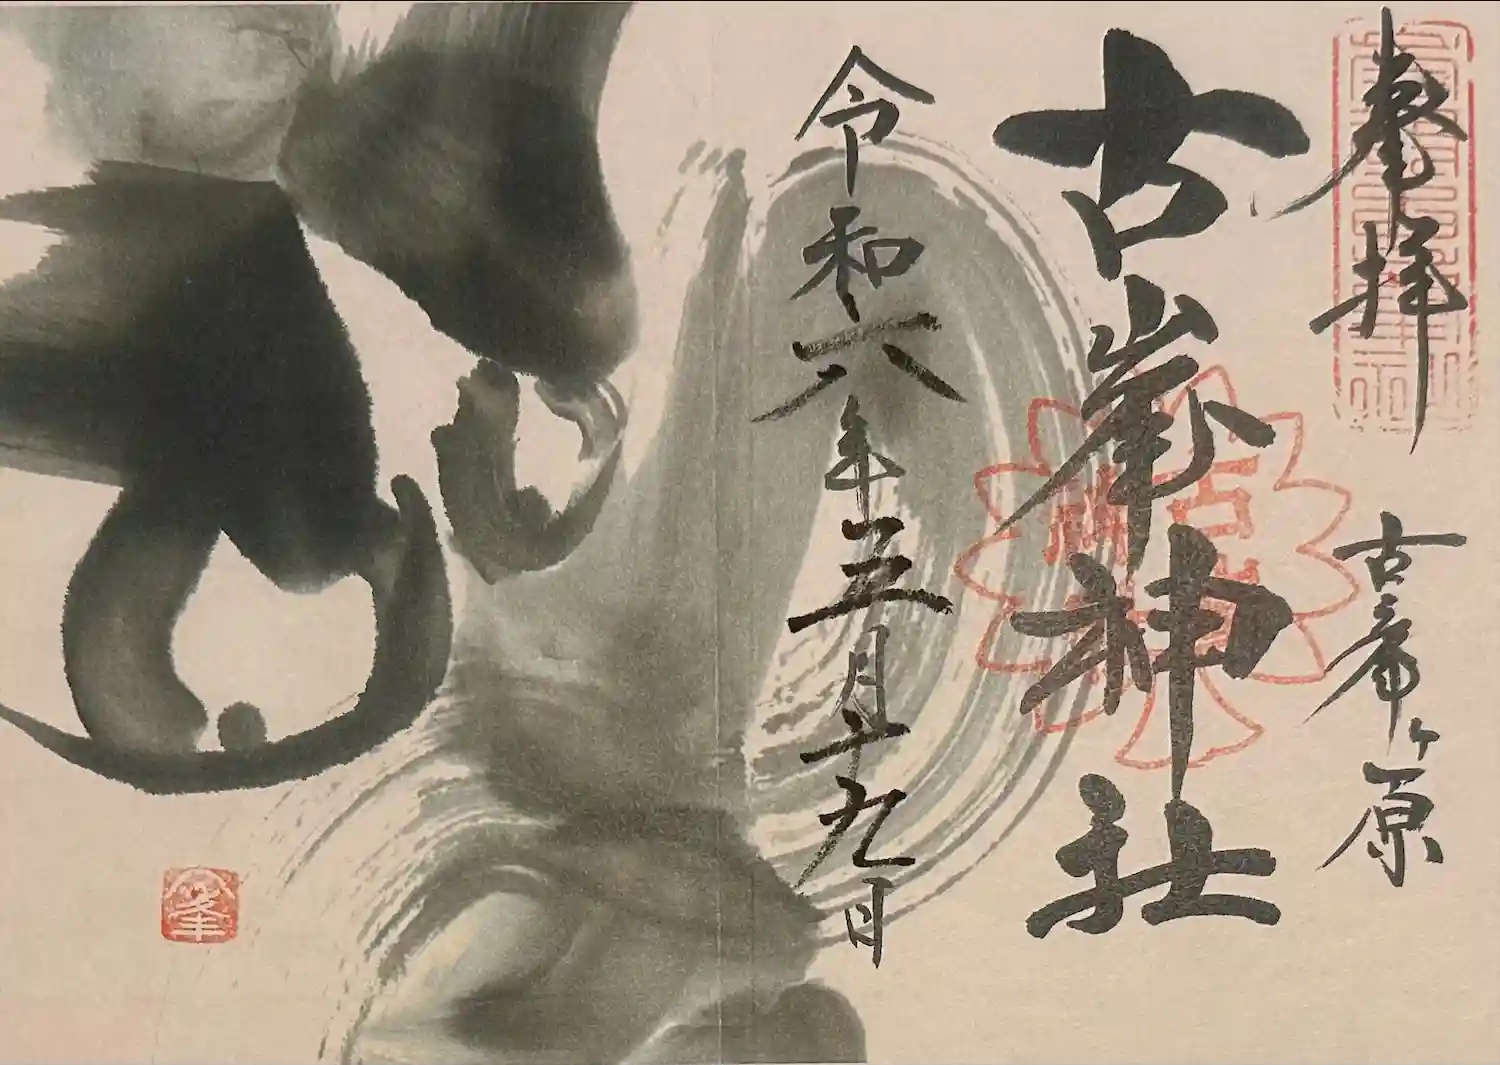 奉拝
古峯ヶ原
古峯神社
令和六年三月十九日
峯